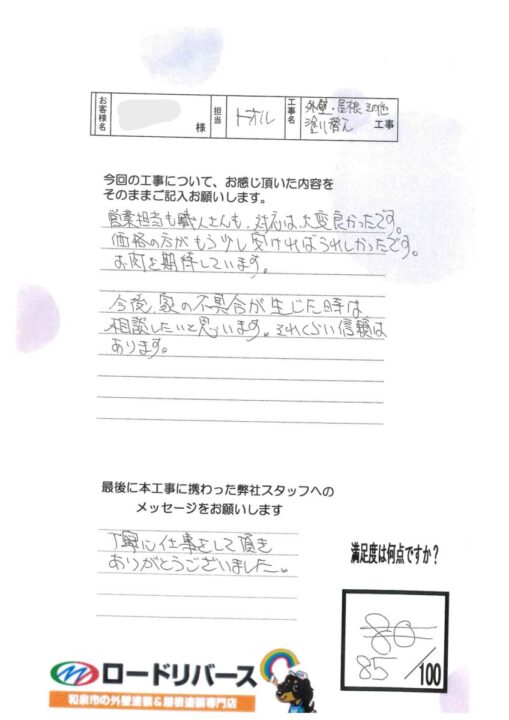 お客様名 様 担当 トオル 工事名 外壁・屋根その他
塗り替え 工事
今回の工事について、お感じ頂いた内容を
そのままご記入お願いします。
営業担当も職人さんも、対応は大変良かったです。
価格の方がもう少し安ければうれしかったです。
お肉を期待しています。
今後、家の不具合が生じた時は
相談したいと思います。それくらい信頼は
あります。
最後に本工事に携わった弊社スタッフへの
メッセージをお願いします
丁寧に仕事をして頂き
ありがとうございました。
満足度は何点ですか?
80
85/100
ロードリバース
和泉市の外壁塗装&屋根塗装専門店